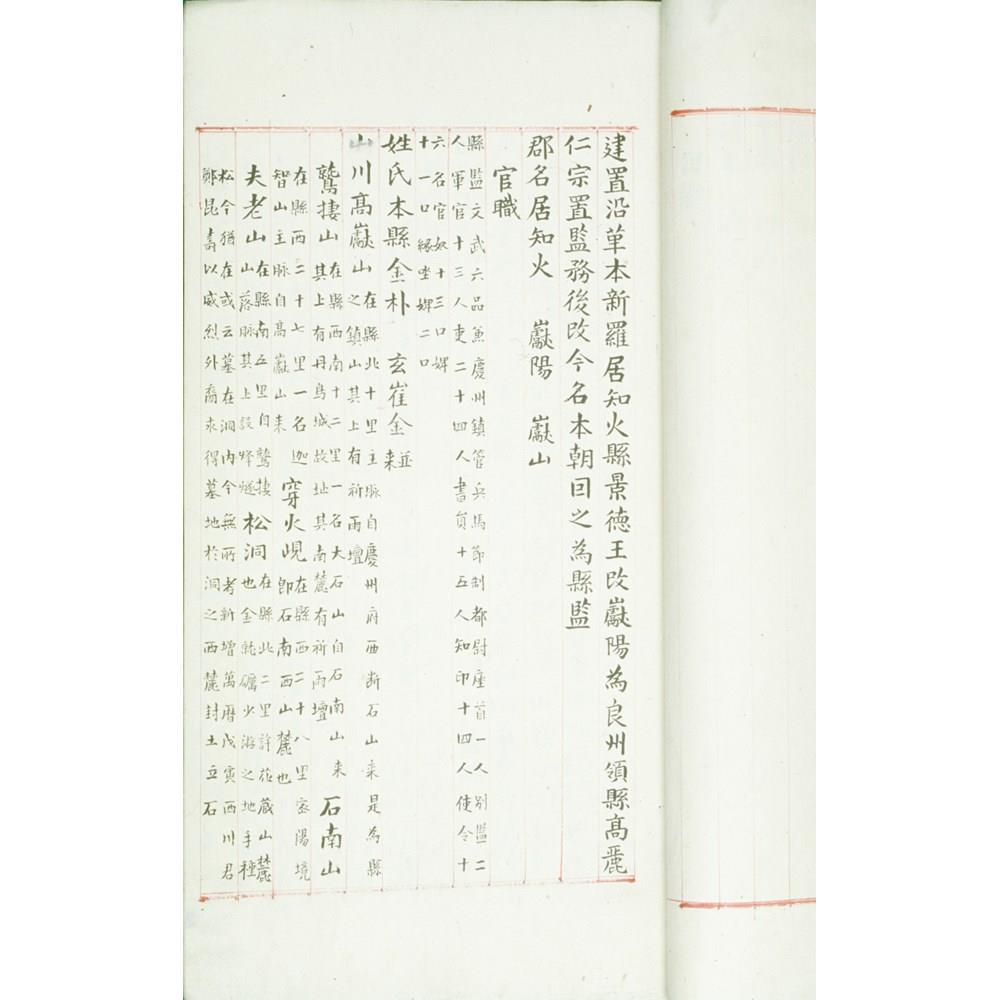 建置沿革本新羅居知火縣景德王改巘陽為良州領縣高麗
仁宗置監務後改今名本朝因之為縣監
郡名居知火 巘陽 巘山
官職
縣監文武六品兼慶州鎮管兵馬節制都尉座首一人別監二
人軍官十三人吏二十四人書員十五人知印十四人使令十
六名官奴十三口婢
十一口緣坐婢二口
姓氏本縣金朴 玄崔金並
来
山川高巘山在縣北十里主脉自慶州府西断石山来是為縣
之鎮山其上有祈雨壇
鷲捿山在縣西南十二里一名大石山自石南山来
其上有丹鳥城故址其南麓有祈雨壇
石南山
在縣西二十七里一名迦
智山主脉自高巘山来
穿火峴在縣西二十八里密陽境
即石南西山麓也
夫老山在縣南五里自鷲捿
山落脉其上設烽燧
松洞在縣北二里許花蔵山麓
也金毓礪少游之地手種
松今猶在或云墓在洞内今無所考新增萬曆戊寅西川君
鄭昆壽以威烈外裔求得墓地於洞之西麓封土立石